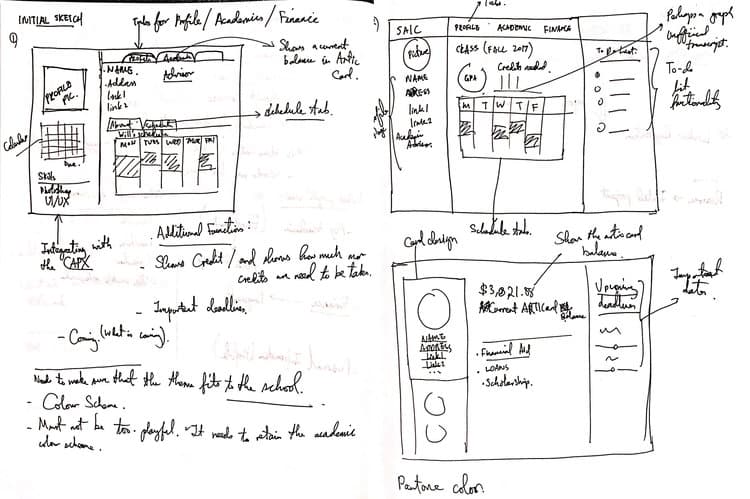 INITIAL SKETCH
Tabs for Profile / Academics / Finance
1)
Profile Academic
NAME
Address
link 1
link 2
Advisor
PROFILE
PIC.
Shows a current
balance in Artic
Card.
Schedule tab.
About Schedule
Will's schedule
MON TUES WED THUR FRI
Calendar
Due.
Skills
Photoshop
UI/UX
Integrating with
the CAPX
Additional Functions:
- Shows Credit / and shows how much more
credits are need to be taken.
- Important deadlines.
- Coming (what is coming).
Need to make sure that the theme fits to the school.
- Colour Scheme.
- Must not be too playful. It needs to retain the academic
color scheme.
Tabs.
SAIC PROFILE ACADEMIC FINANCE
Picture
NAME
link 1
link 2
Academic
Advisor.
CLASS (FALL 2017)
Credits needed.
GPA
M T W T F
To Do List.
Perhaps a graph
unofficial
transcript.
To-do
list
functionality
Schedule tab.
Card design
Show the artic card
balance.
$3,021.88
Current ARTICard
Balance
NAME
ADDRESS
Link 1
Link 2
...
• Financial Aid
• LOANS
• Scholarship.
Upcoming
deadlines
Important
dates
Pantone color.